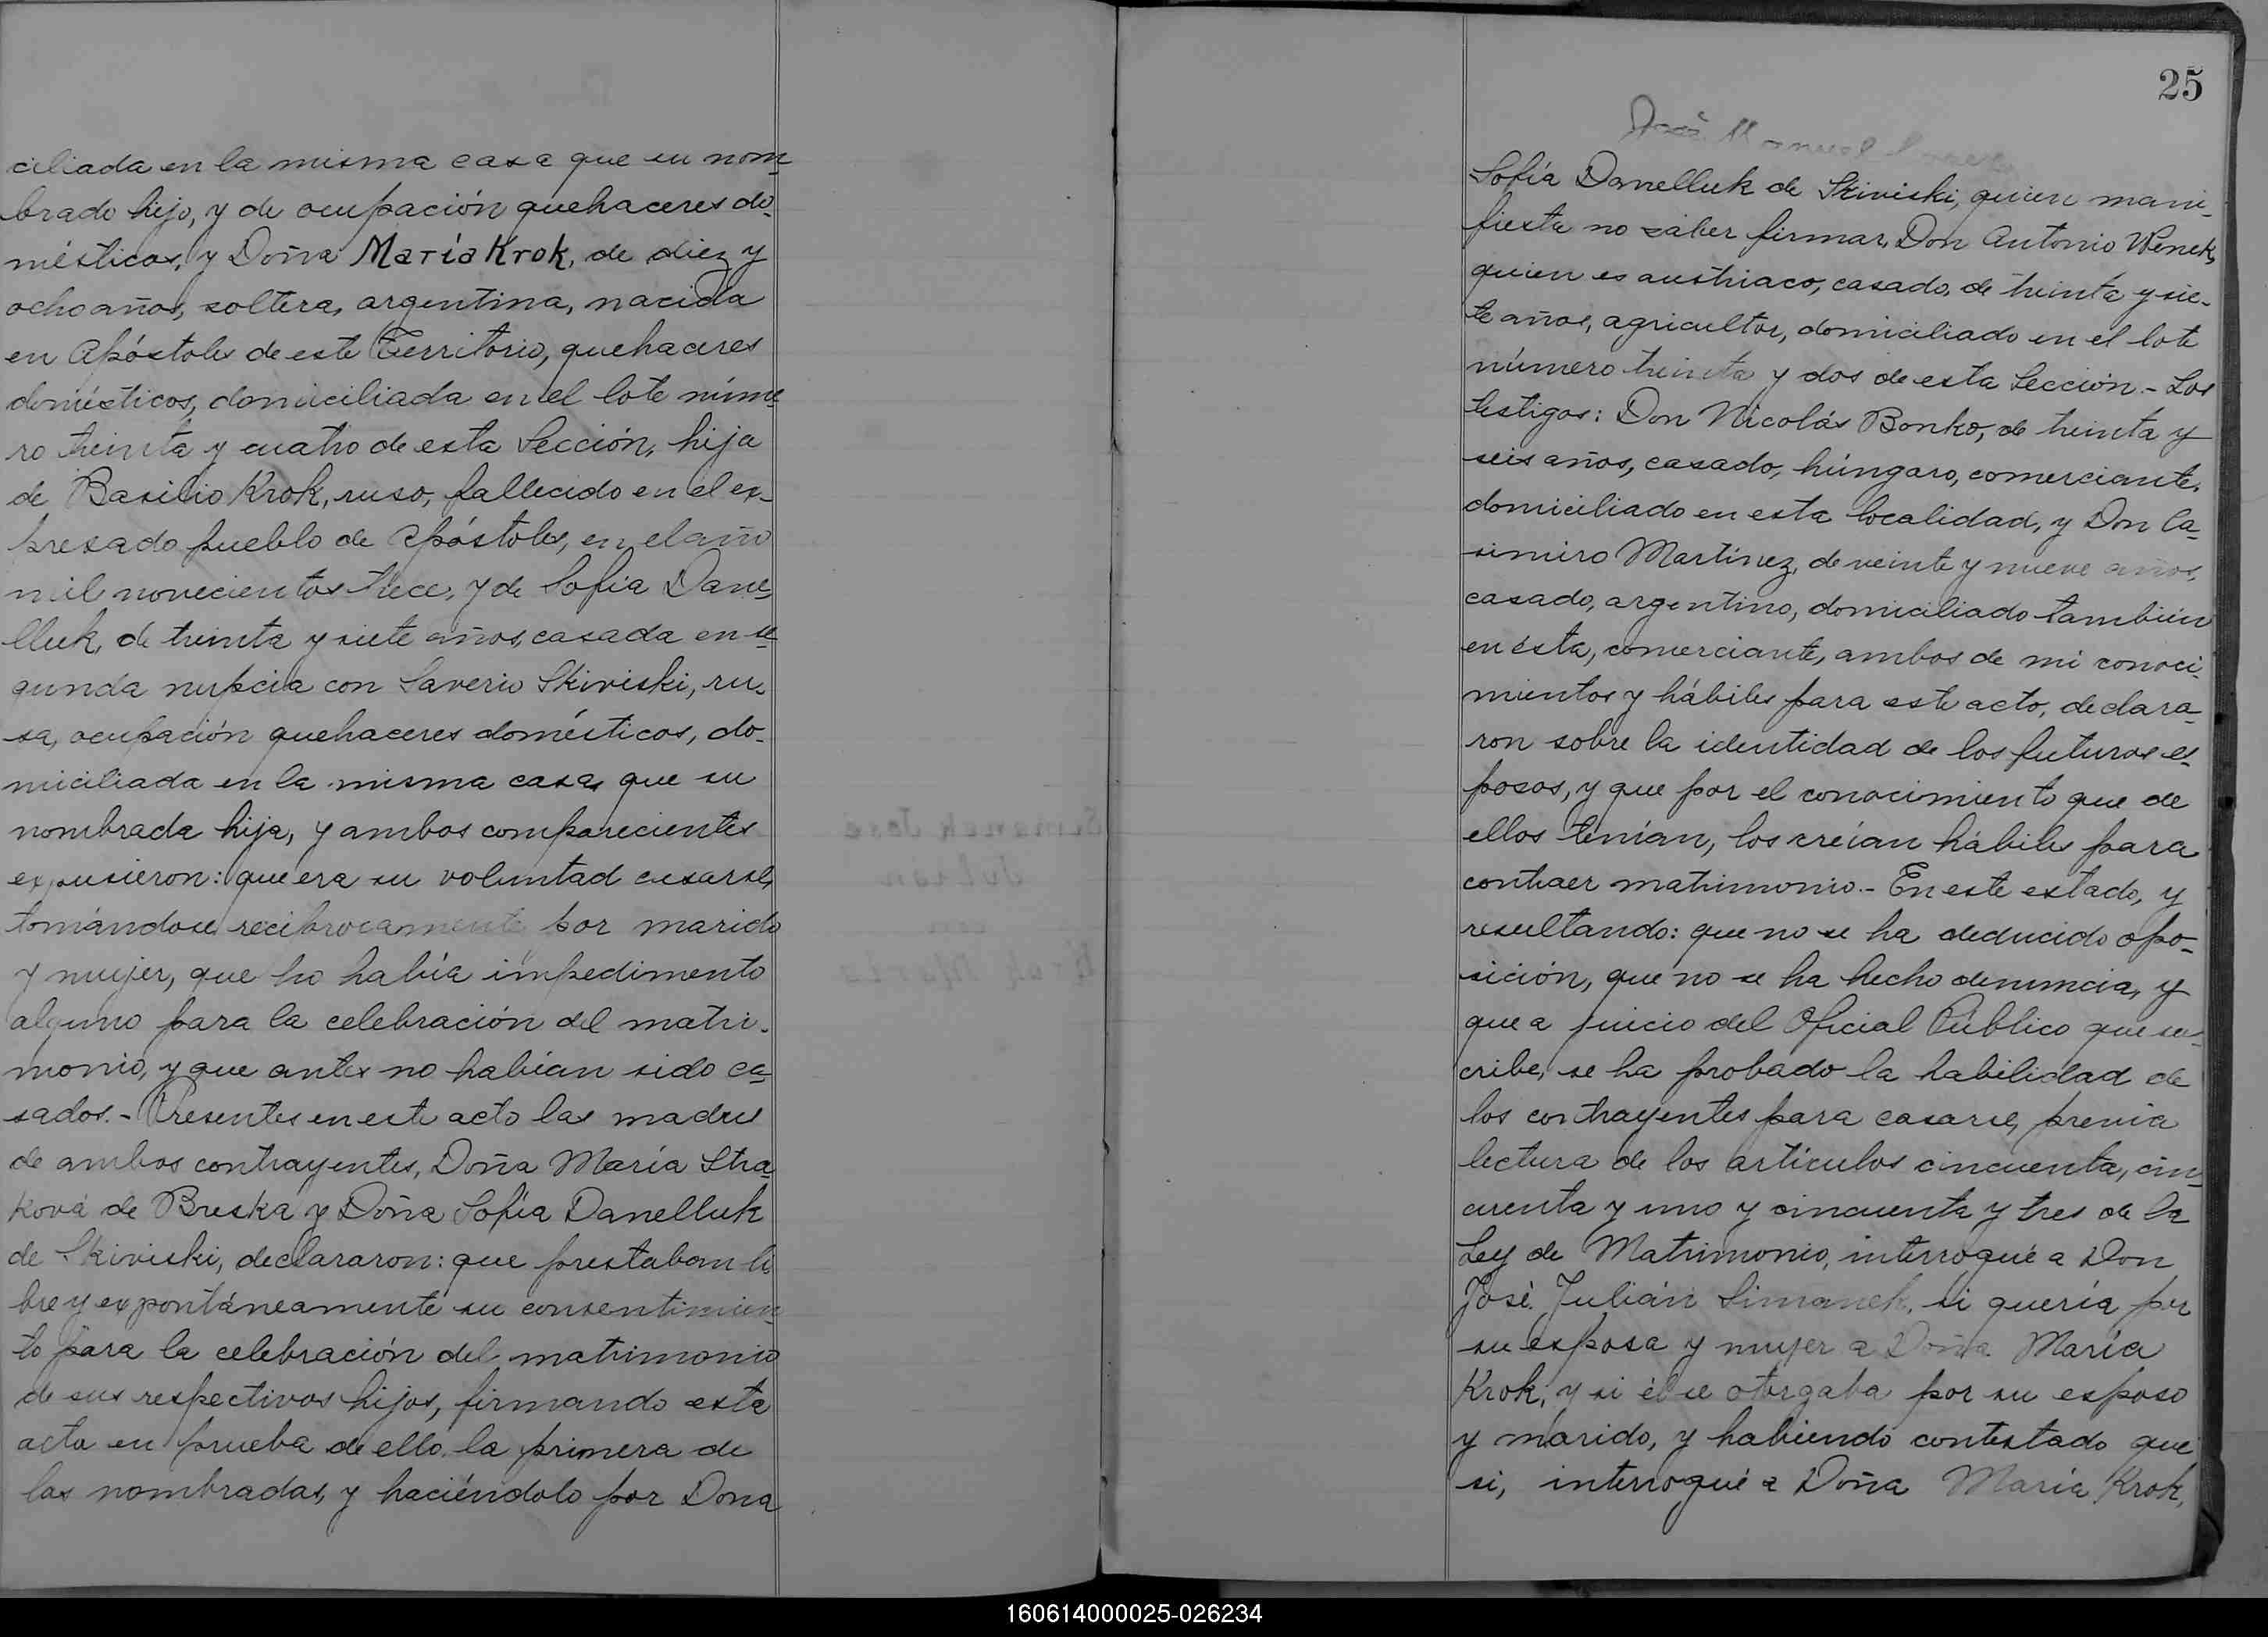 ciliada en la misma casa que su nom-
brado hijo, y de ocupación quehaceres do-
mésticos, y Doña María Krok, de diez y
ocho años, soltera, argentina, nacida
en Apóstoles de este Territorio, quehaceres
domésticos, domiciliada en el lote núme-
ro treinta y cuatro de esta Sección, hija
de Basilio Krok, ruso, fallecido en el ex-
presado pueblo de Apóstoles, en el año
mil novecientos trece, y de Sofía Dane-
lluk, de treinta y siete años, casada en se-
gunda nupcia con Saverio Skiviski, ru-
sa, ocupación quehaceres domésticos, do-
miciliada en la misma casa que su
nombrada hija, y ambos comparecientes
expusieron: que era su voluntad casarse,
tomándose recíprocamente por marido
y mujer, que no había impedimento
alguno para la celebración del matri-
monio, y que antes no habían sido ca-
sados.- Presentes en este acto las madres
de ambos contrayentes, Doña María Stra-
ková de Breska y Doña Sofía Danelluk
de Skiviski, declararon: que prestaban li-
bre y expontáneamente su consentimien-
to para la celebración del matrimonio
de sus respectivos hijos, firmando esta
acta en prueba de ello la primera de
las nombradas, y haciéndolo por Dona
25
José Manuel
Sofía Danelluk de Skiviski, quien mani-
fiesta no saber firmar, Don Antonio Wenek,
quien es austriaco, casado, de treinta y sie-
te años, agricultor, domiciliado en el lote
número treinta y dos de esta Sección.- Los
testigos: Don Nicolás Bonko, de treinta y
seis años, casado, húngaro, comerciante,
domiciliado en esta localidad, y Don Ca-
simiro Martinez, de veinte y nueve años,
casado, argentino, domiciliado también
en ésta, comerciante, ambos de mi conoci-
mientos y hábiles para este acto, declara-
ron sobre la identidad de los futuros es-
posos, y que por el conocimiento que de
ellos tenían, los creían hábiles para
contraer matrimonio.- En este estado, y
resultando: que no se ha deducido opo-
sición, que no se ha hecho denuncia, y
que a juicio del Oficial Público que sus-
cribe, se ha probado la habilidad de
los contrayentes para casarse, previa
lectura de los artículos cincuenta, cin-
cuenta y uno y cincuenta y tres de la
Ley de Matrimonio, interrogué a Don
José Julián Simanek, si quería por
su esposa y mujer a Doña María
Krok, y si él se otorgaba por su esposo
y marido, y habiendo contestado que
si, interrogué a Doña María Krok,
160614000025-026234